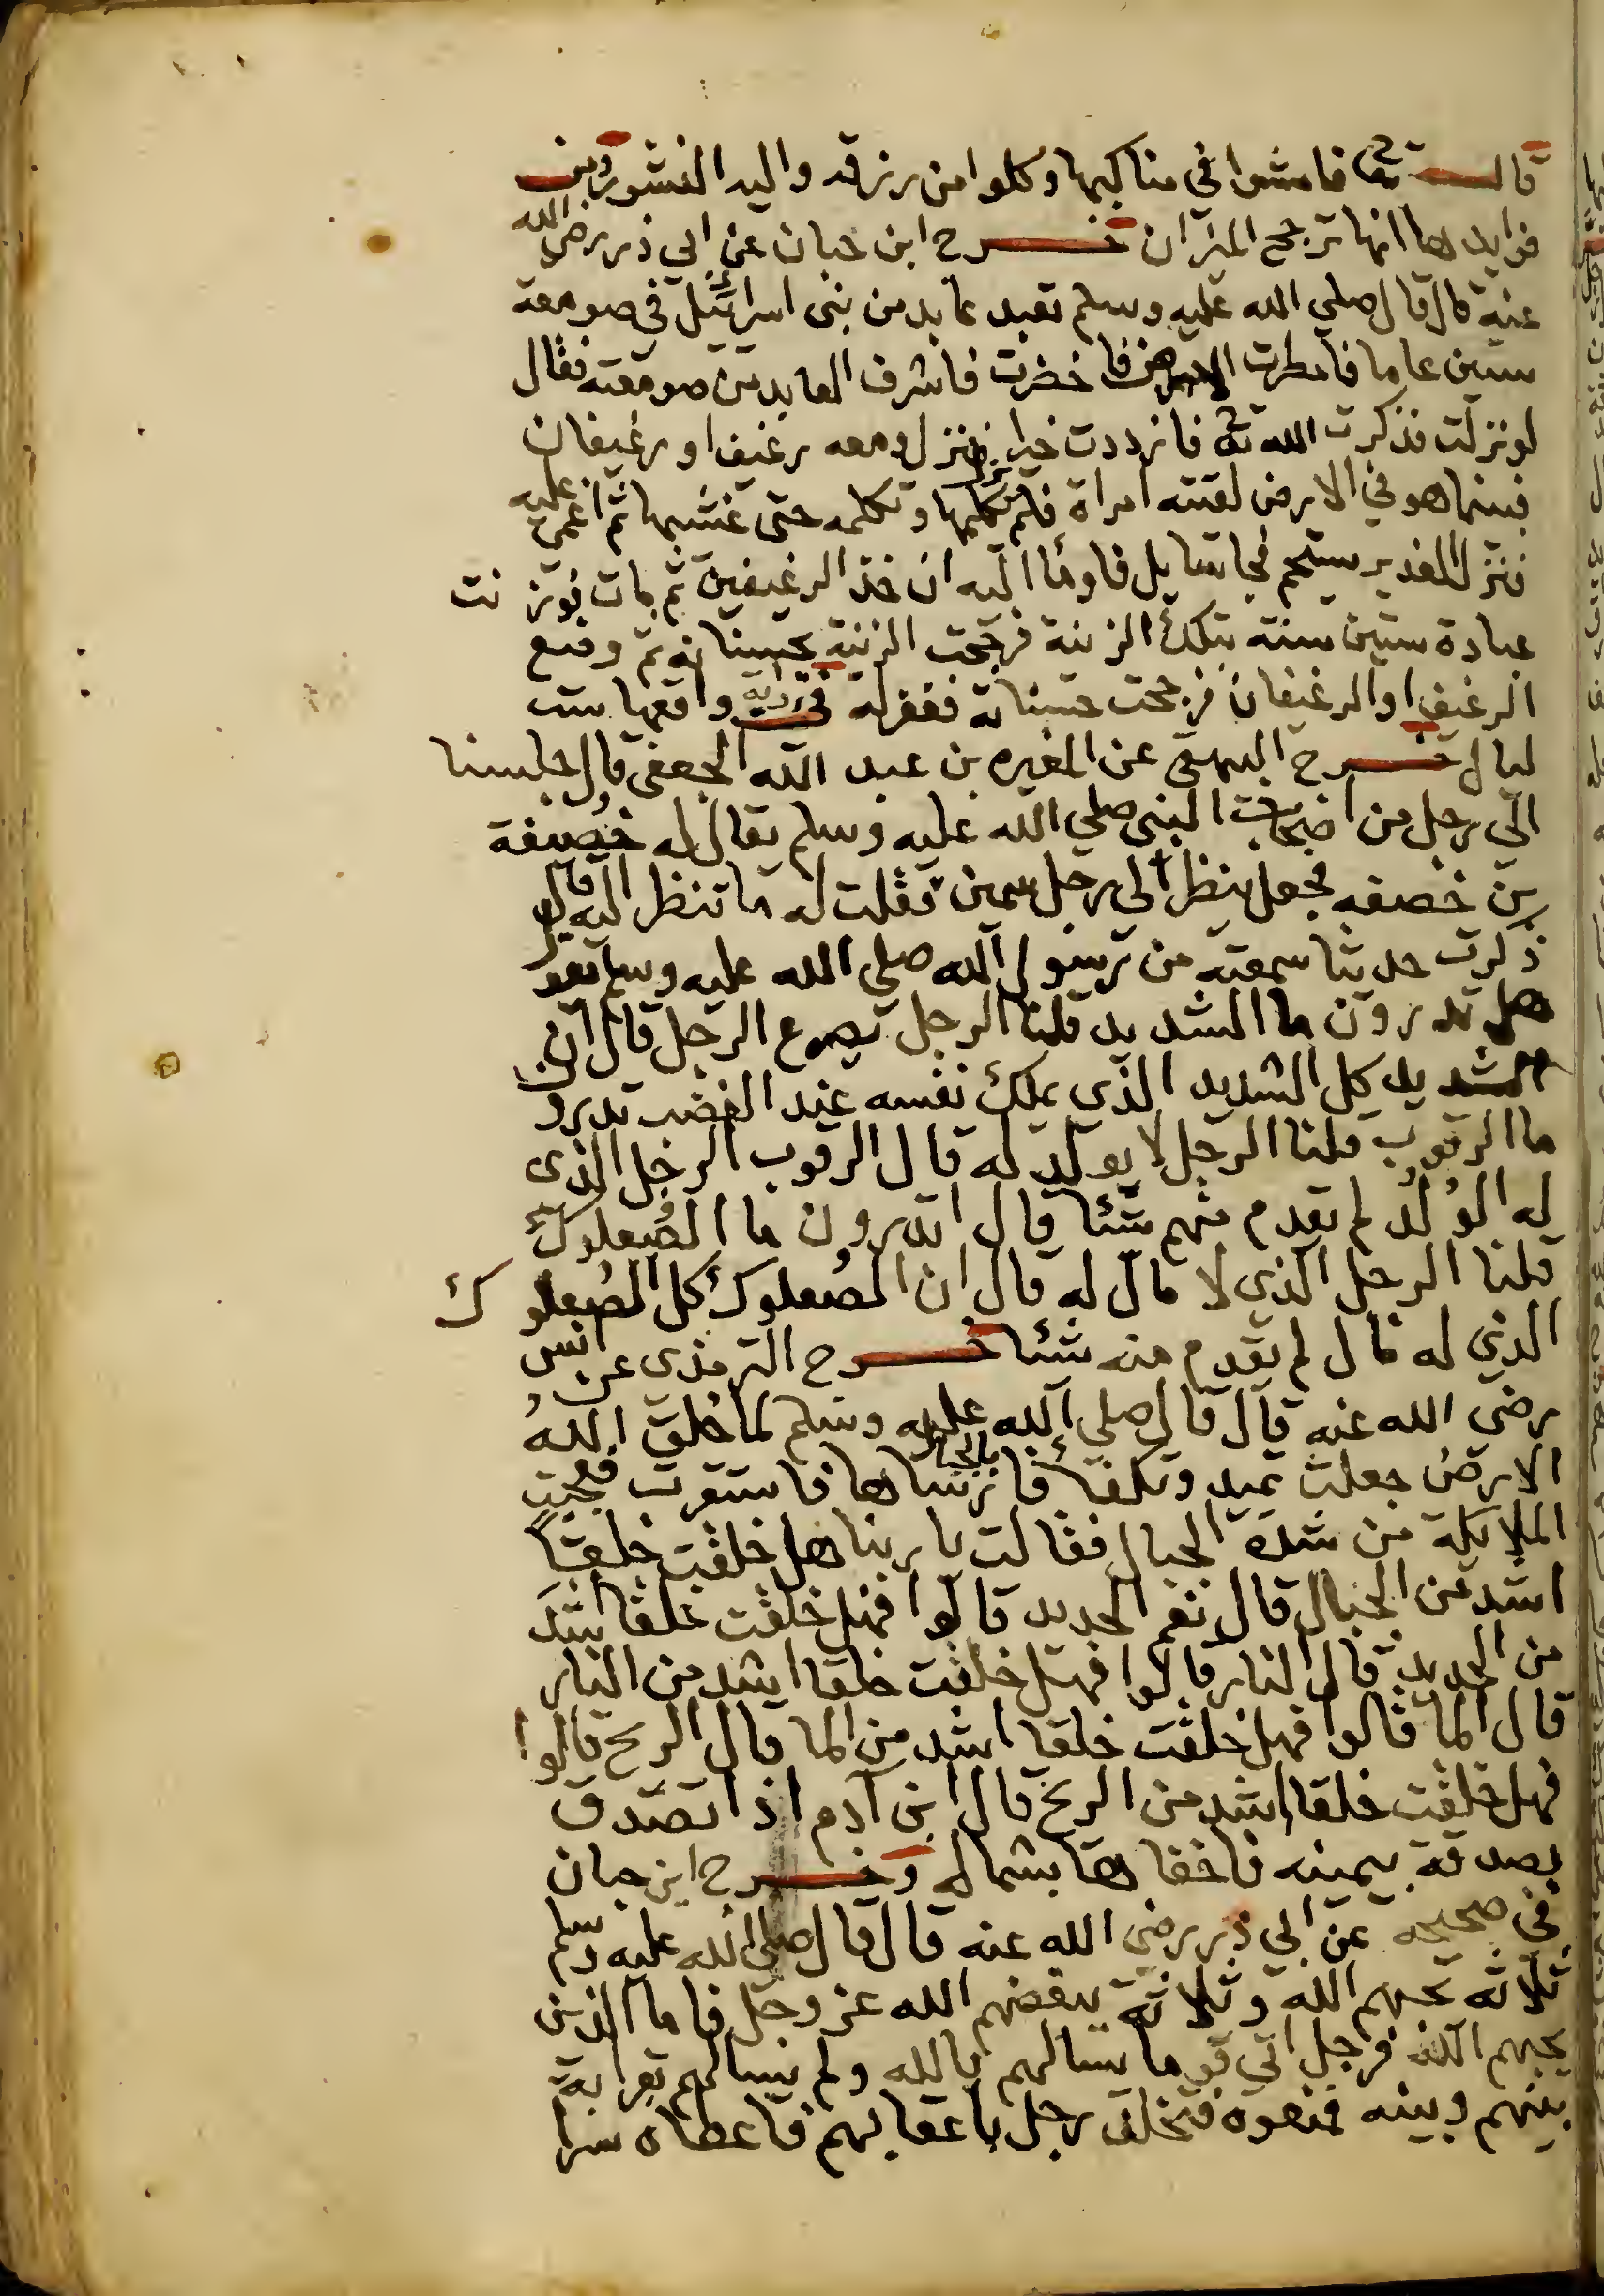 قال تعا فامشوا في مناكبها وكلوا من رزقه واليه النشور ومن
فوايدها انها ترجح الميزان خرج ابن حبان عن ابي ذر رضي الله
عنه قال قال صلي الله عليه وسلم تعبد عابد من بني اسرائيل في صومعة
ستين عاما فامطرت الارض فاخضرت فاشرف العابد من صومعته فقال
لو نزلت فذكرت الله تعا فازددت خيرا فنزل ومعه رغيف او رغيفان
فبينما هو في الارض لقيته امراة فلم يزل يكلمها وتكلمه حتى غشيها ثم اغمي عليه
فنزل الغدير يستحم فجا سايل فاوما اليه ان خذ الرغيفين ثم مات فوزنت
عبادة ستين سنة بتلك الزنية فرجحت الزنية بحسناته ثم وضع
الرغيف او الرغيفان فرجحت حسناته فغفر له في رواية واقعها ست
ليال خرج البيهقي عن المغيره بن عبد الله الجعفي قال جلسنا
الي رجل من اصحاب النبي صلي الله عليه وسلم يقال له خصفة
بن خصفه فجعل ينظر الي رجل سمين فقلت له ما تنظر اليه قال
ذكرت حديثا سمعته من رسول الله صلي الله عليه وسلم يقول
هل تدرون ما الشديد قلنا الرجل يصرع الرجل قال ان
الشديد كل الشديد الذي يملك نفسه عند الغضب تدرون
ما الرقوب قلنا الرجل لا يولد له قال الرقوب الرجل الذي
له الولد لم يقدم منهم شئا قال اتدرون ما الصعلوك
قلنا الرجل الذي لا مال له قال ان الصعلوك كل الصعلوك
الذي له مال لم يقدم منه شئا خرج الترمذي عن انس
رضي الله عنه قال قال صلي الله عليه وسلم لما خلق الله
الارض جعلت تميد وتكفا فارساها بالجبال فاستقرت فعجبت
الملايكة من شدة الجبال فقالت يا ربنا هل خلقت خلقا
اشد من الجبال قال نعم الحديد قالوا فهل خلقت خلقا اشد
من الحديد قال النار قالوا فهل خلقت خلقا اشد من النار
قال الما قالوا فهل خلقت خلقا اشد من الما قال الريح قالوا
فهل خلقت خلقا اشد من الريح قال ابن آدم اذا تصدق
بصدقة بيمينه فاخفاها بشماله وخرج ابن حبان
في صحيحه عن ابي ذر رضي الله عنه قال قال صلي الله عليه وسلم
ثلاثه يحبهم الله وثلاثة يبغضهم الله عز وجل فاما الذين
يحبهم الله فرجل اتي قوما يسالهم بالله ولم يسالهم بقرابة
بينهم وبينه فمنعوه فتخلف رجل باعقابهم فاعطاه سرا